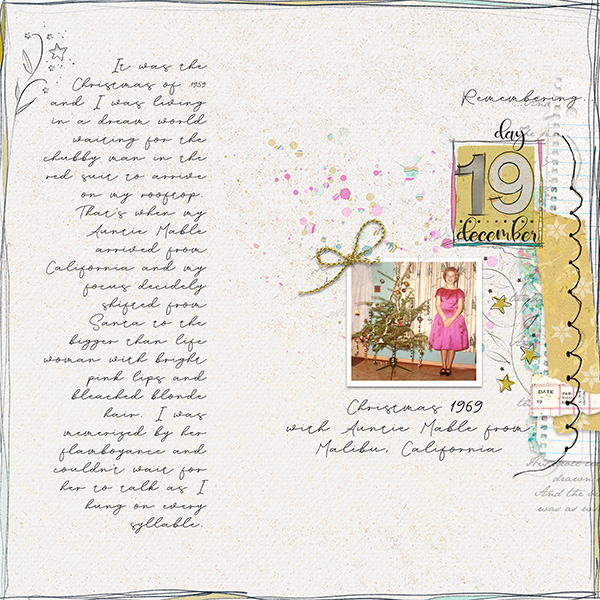 It was the
Christmas of 1959
and I was living
in a dream world
waiting for the
chubby man in the
red suit to arrive
on my rooftop.
That's when my
Auntie Mable
arrived from
California and my
focus decidely
shifted from
Santa to the
bigger than life
woman with bright
pink lips and
bleached blonde
hair. I was
memerized by her
flamboyance and
couldn't wait for
her to talk as I
hung on every
syllable.
Remembering...
day
19
december
Christmas 1969
with Auntie Mable from
Malibu, California
DATE
19
drawn
And the
was as